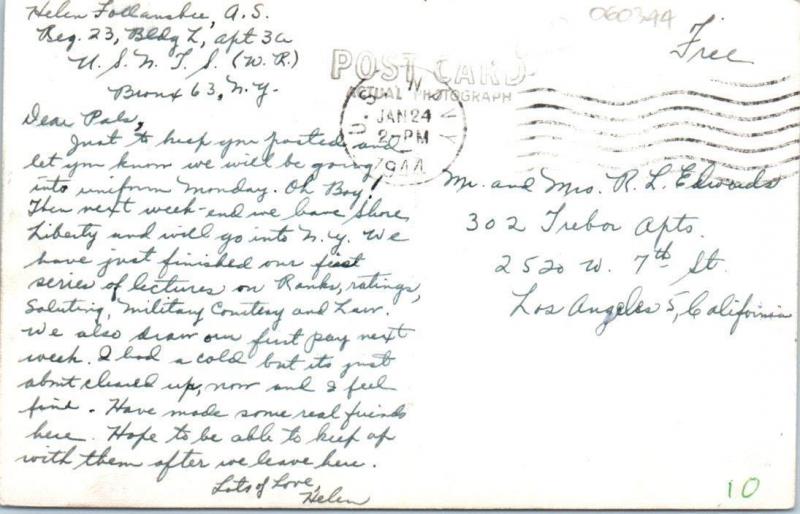 Helen Follansbee, A.S.
Reg. 23, Bldg L, apt 3a
U.S.N.T.S. (W.R.)
Bronx 63, N.Y.
060344
Free
POST CARD
ACTUAL PHOTOGRAPH
U.S. N
JAN 24
2 - PM
1944
Dear Pals,
Just to keep you posted and
let you know we will be going
into uniform Monday. Oh Boy!
Then next week-end we have Shore
Liberty and will go into N.Y. We
have just finished our first
series of lectures on Ranks, ratings,
Saluting, Military Courtesy and Law.
We also draw our first pay next
week. I had a cold but its just
about cleared up, now and I feel
fine. Have made some real friends
here. Hope to be able to keep up
with them after we leave here.
Lots of Love,
Helen
Mr. and Mrs. R. L. Edwards
302 Trebor Apts.
2520 W. 7th St.
Los Angeles 5, California
10